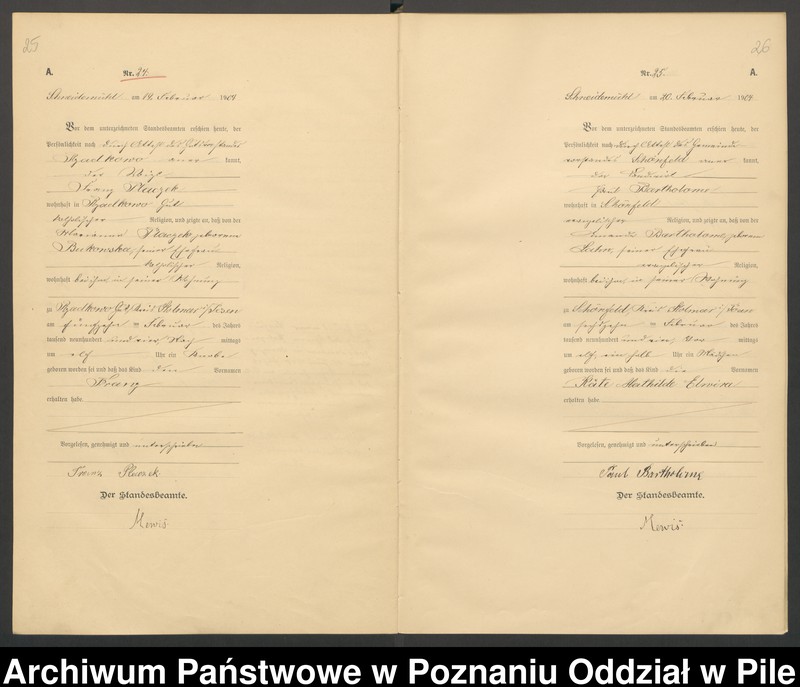 25
A. Nr. 24.
Schneidemühl am 19. Februar 1904
Vor dem unterzeichneten Standesbeamten erschien heute, der
Persönlichkeit nach durch Attest des Gutsvorstandes
Rzadkowo aner kannt,
der
Franz Placzek
wohnhaft in Rzadkowo Gut
katholischer Religion, und zeigte an, daß von der
Marianna Placzek, geborenen
Bukowska, seiner Ehefrau
katholischer Religion,
wohnhaft bei ihm in seiner Wohnung
zu Rzadkowo Gut, Kreis Kolmar i/Posen
am fünfzehn ten Februar des Jahres
tausend neunhundert und vier Nach mittags
um elf Uhr ein Knabe
geboren worden sei und daß das Kind den Vornamen
Franz
erhalten habe
Vorgelesen, genehmigt und unterschrieben
Franz Placzek
Der Standesbeamte.
Mewis
26
Nr. 25. A.
Schneidemühl am 20. Februar 1904
Vor dem unterzeichneten Standesbeamten erschien heute, der
Persönlichkeit nach durch Attest des Gemeinde
vorstandes Schönfeld aner kannt,
der
Paul Bartholome
wohnhaft in Schönfeld
evangelischer Religion, und zeigte an, daß von der
Bartholome, geborenen
seiner Ehefrau
evangelischer Religion,
wohnhaft bei ihm in seiner Wohnung
zu Schönfeld, Kreis Kolmar i/Posen
am sechszehn ten Februar des Jahres
tausend neunhundert und vier Vor mittags
um elf ein halb Uhr ein Mädchen
geboren worden sei und daß das Kind die Vornamen
Käte Mathilde Elwira
erhalten habe
Vorgelesen, genehmigt und unterschrieben
Paul Bartholome
Der Standesbeamte.
Mewis
Archiwum Państwowe w Poznaniu Oddział w Pile